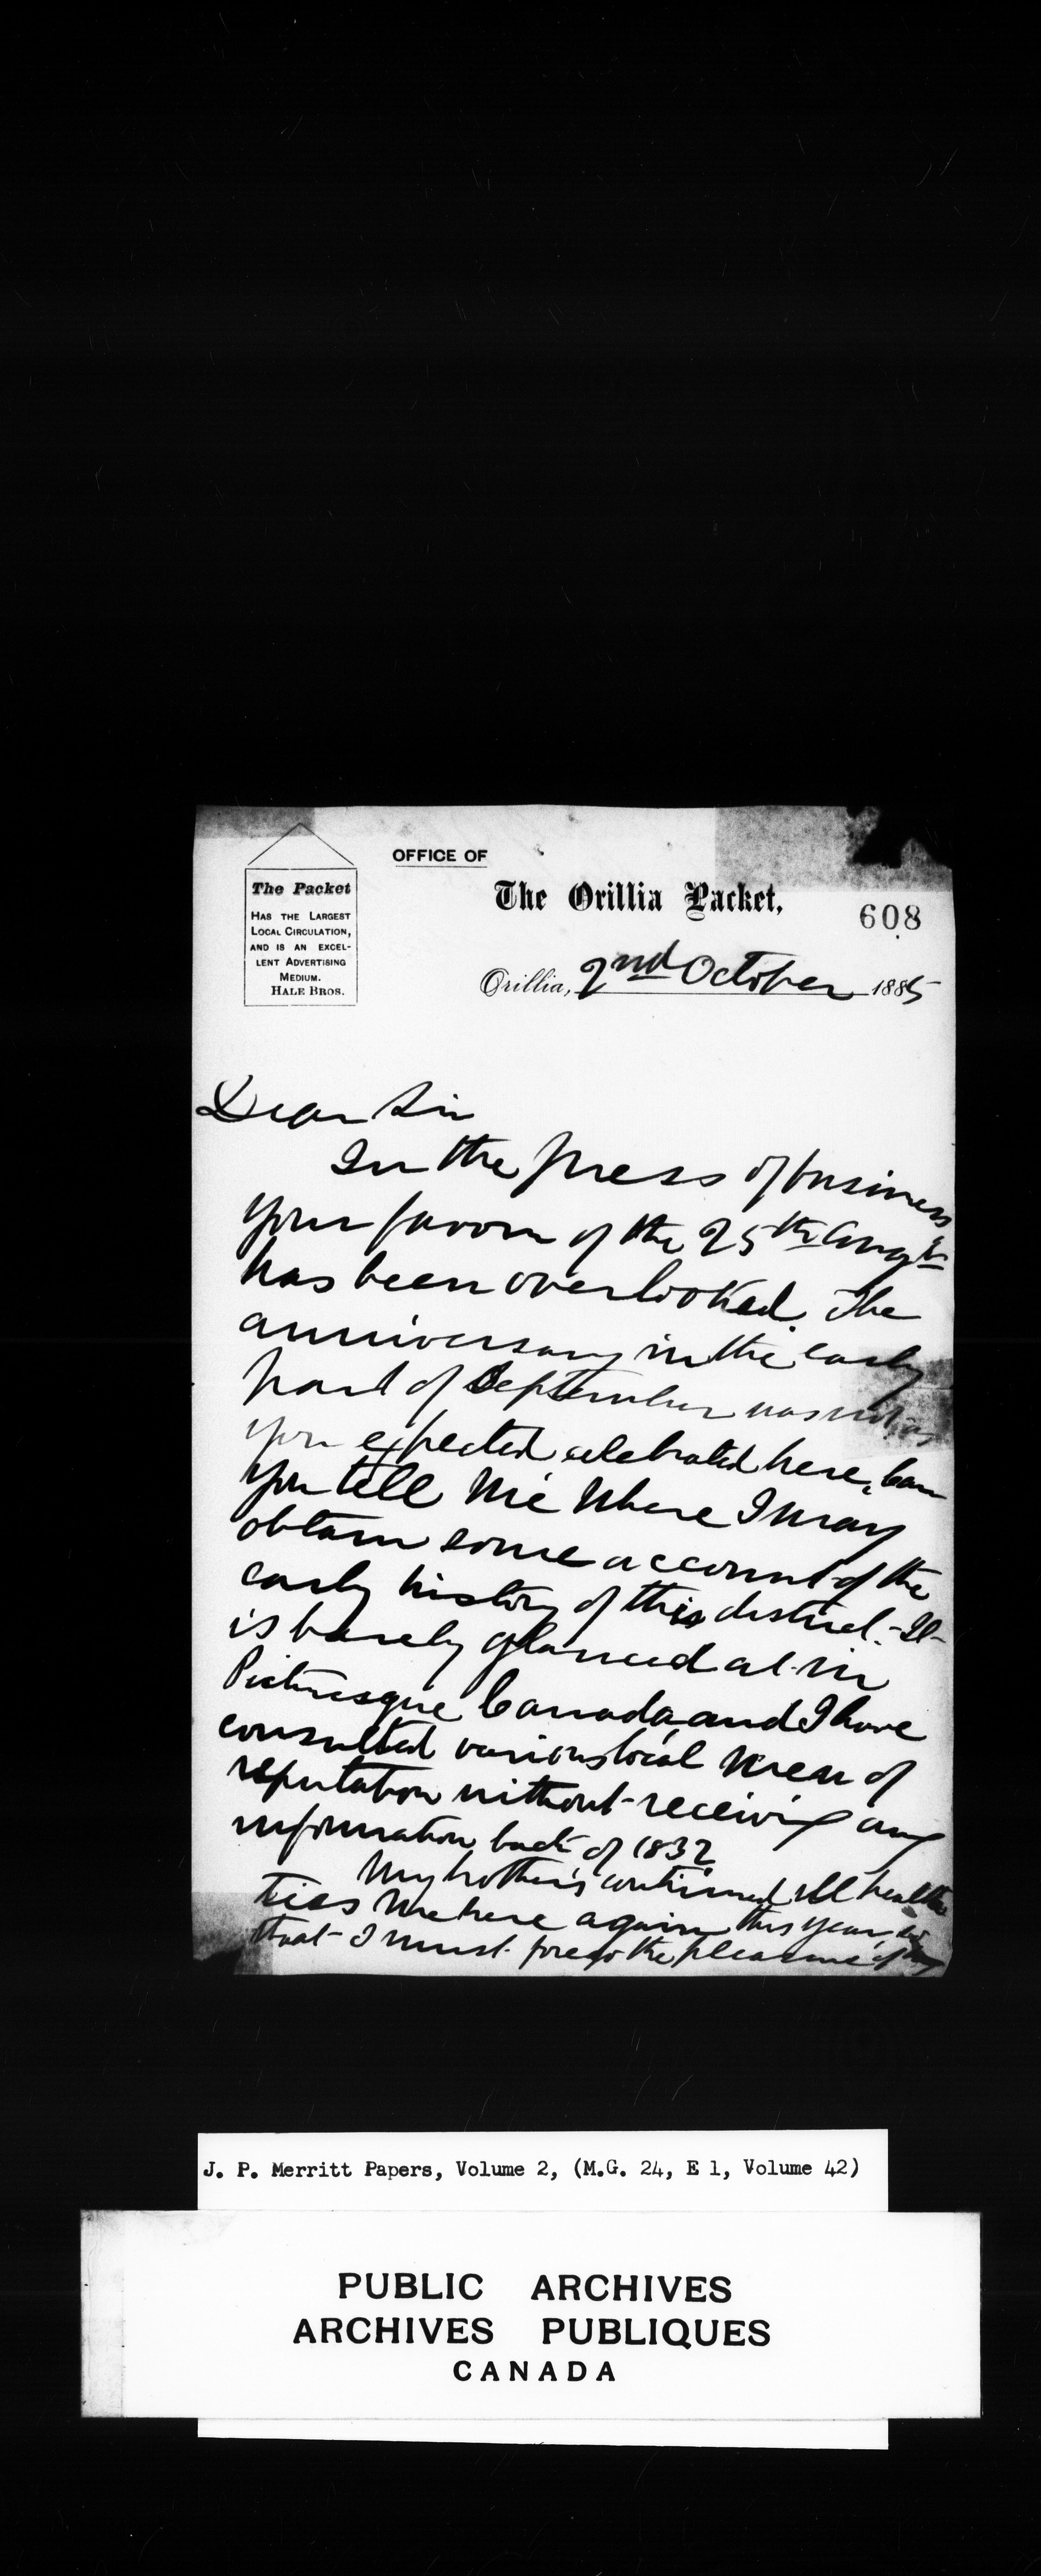 OFFICE OF
The Orillia Packet,
The Packet
HAS THE LARGEST
LOCAL CIRCULATION,
AND IS AN EXCEL-
LENT ADVERTISING
MEDIUM.
HALE BROS.
608
Orillia, 2nd October 1885
Dear Sir
In the press of business
your favor of the 25th Augt
has been overlooked. The
anniversary in the early
part of September was not as
you expected celebrated here. Can
you tell me where I may
obtain some account of the
early history of this district. It
is barely glanced at in
Picturesque Canada and I have
consulted various local men of
reputation without receiving any
information back of 1832
My brother's continued ill health
ties me here again this year, so
that I must forego the pleasure of my
J. P. Merritt Papers, Volume 2, (M.G. 24, E 1, Volume 42)
PUBLIC ARCHIVES
ARCHIVES PUBLIQUES
CANADA